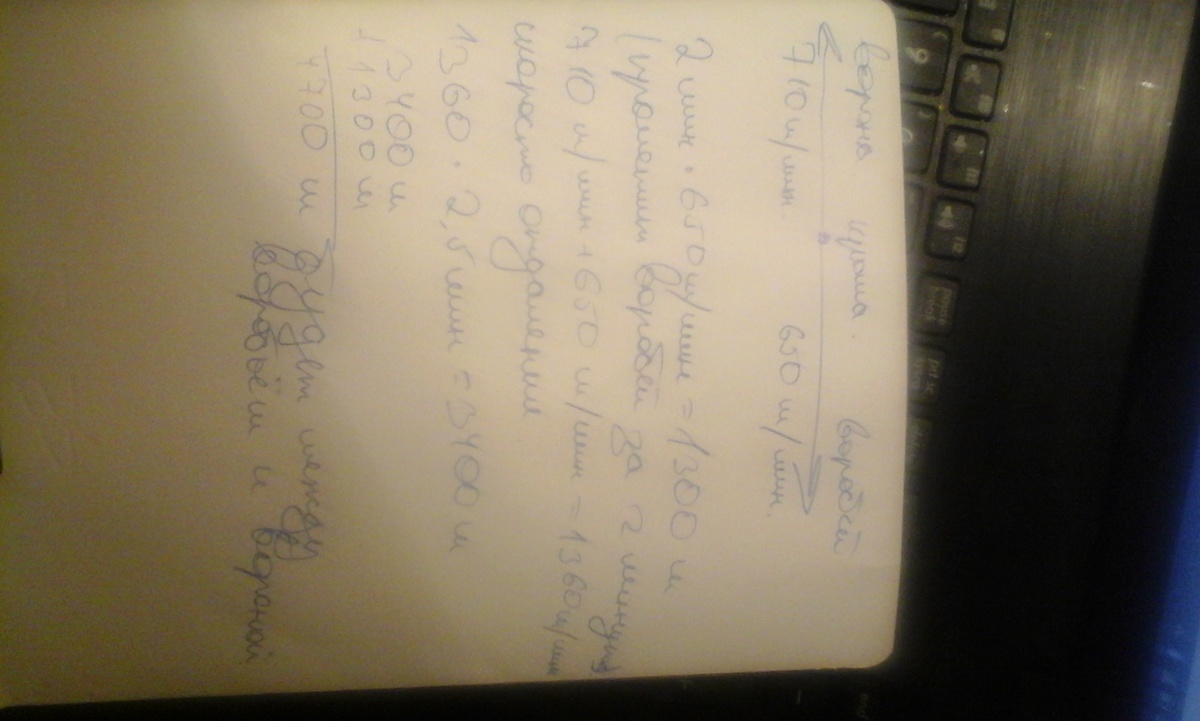 ворона крыша. воробей
710 м/мин. 650 м/мин.
2 мин · 650 м/мин = 1300 м
(пролетит воробей за 2 минуты)
710 м/мин + 650 м/мин = 1360 м/мин
скорость отдаления
1360 · 2,5 мин = 3400 м
3400 м
+ 1300 м
4700 м будет между
воробьём и вороной